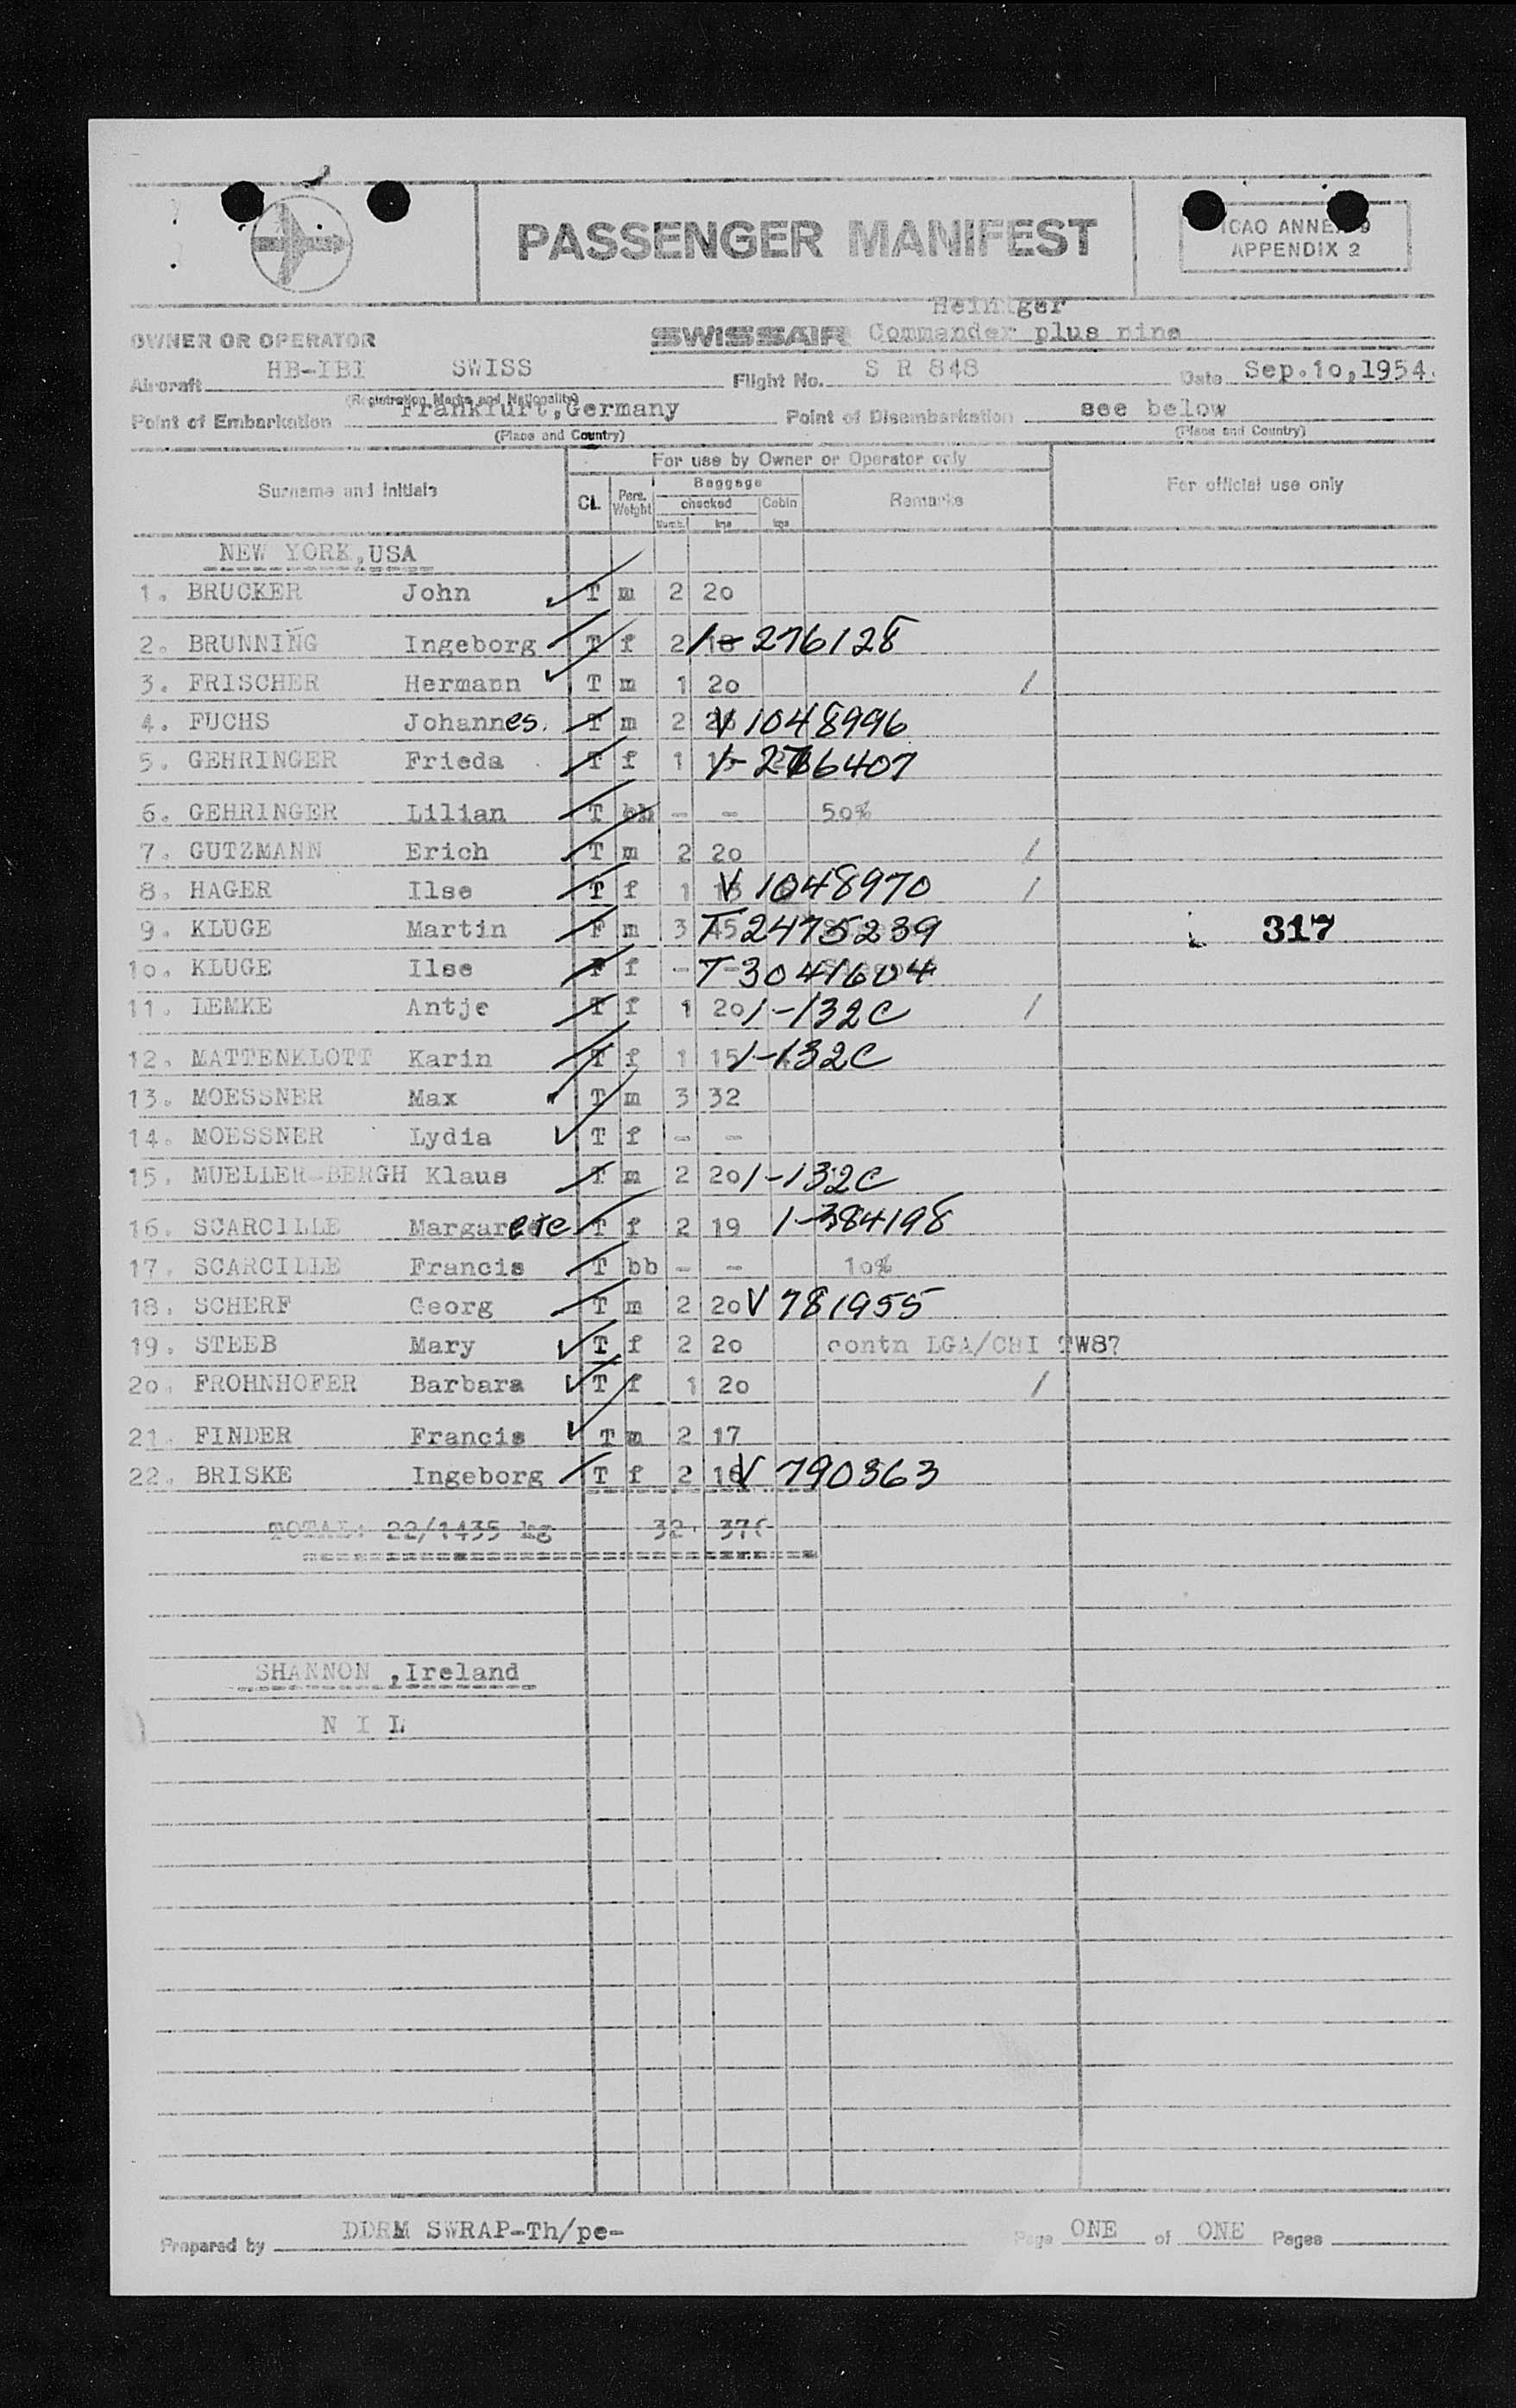 PASSENGER MANIFEST
ICAO ANNEX 9
APPENDIX 2
OWNER OR OPERATOR SWISSAIR Commander plus nine
Aircraft HB-IBI SWISS Flight No. S R 848 Date Sep.10,1954.
(Registration Marks and Nationality)
Point of Embarkation Frankfurt,Germany Point of Disembarkation see below
(Place and Country) (Place and Country)
For use by Owner or Operator only
Surname and initials CL Pers. Weight Baggage checked Numb. kgs Cabin kgs Remarks For official use only
NEW YORK,USA
1. BRUCKER John T m 2 20
2. BRUNNING Ingeborg T f 2 18 1-276128
3. FRISCHER Hermann T m 1 20 /
4. FUCHS Johannes. T m 2 V 1048996
5. GEHRINGER Frieda T f 1 1-276407
6. GEHRINGER Lilian T bb - - 50%
7. GUTZMANN Erich T m 2 20 /
8. HAGER Ilse T f 1 15 V 1048970 /
9. KLUGE Martin F m 3 45 T 2475239 317
10. KLUGE Ilse F f - - T-3041604
11. LEMKE Antje T f 1 20 1-132C /
12. MATTENKLOTT Karin T f 1 15 1-132C
13. MOESSNER Max T m 3 32
14. MOESSNER Lydia T f - -
15. MUELLER-BERGH Klaus T m 2 20 1-132C
16. SCARCILLE Margarete T f 2 19 1-384198
17. SCARCILLE Francis T bb - - 10%
18. SCHERF Georg T m 2 20 V 781955
19. STEEB Mary T f 2 20 contn LGA/CHI TW87
20. FROHNHOFER Barbara T f 1 20 /
21. FINDER Francis T m 2 17
22. BRISKE Ingeborg T f 2 16 V 790363
TOTAL: 22/1435 kg 32
SHANNON ,Ireland
N I L
Prepared by DDRM SWRAP-Th/pe- Page ONE of ONE Pages